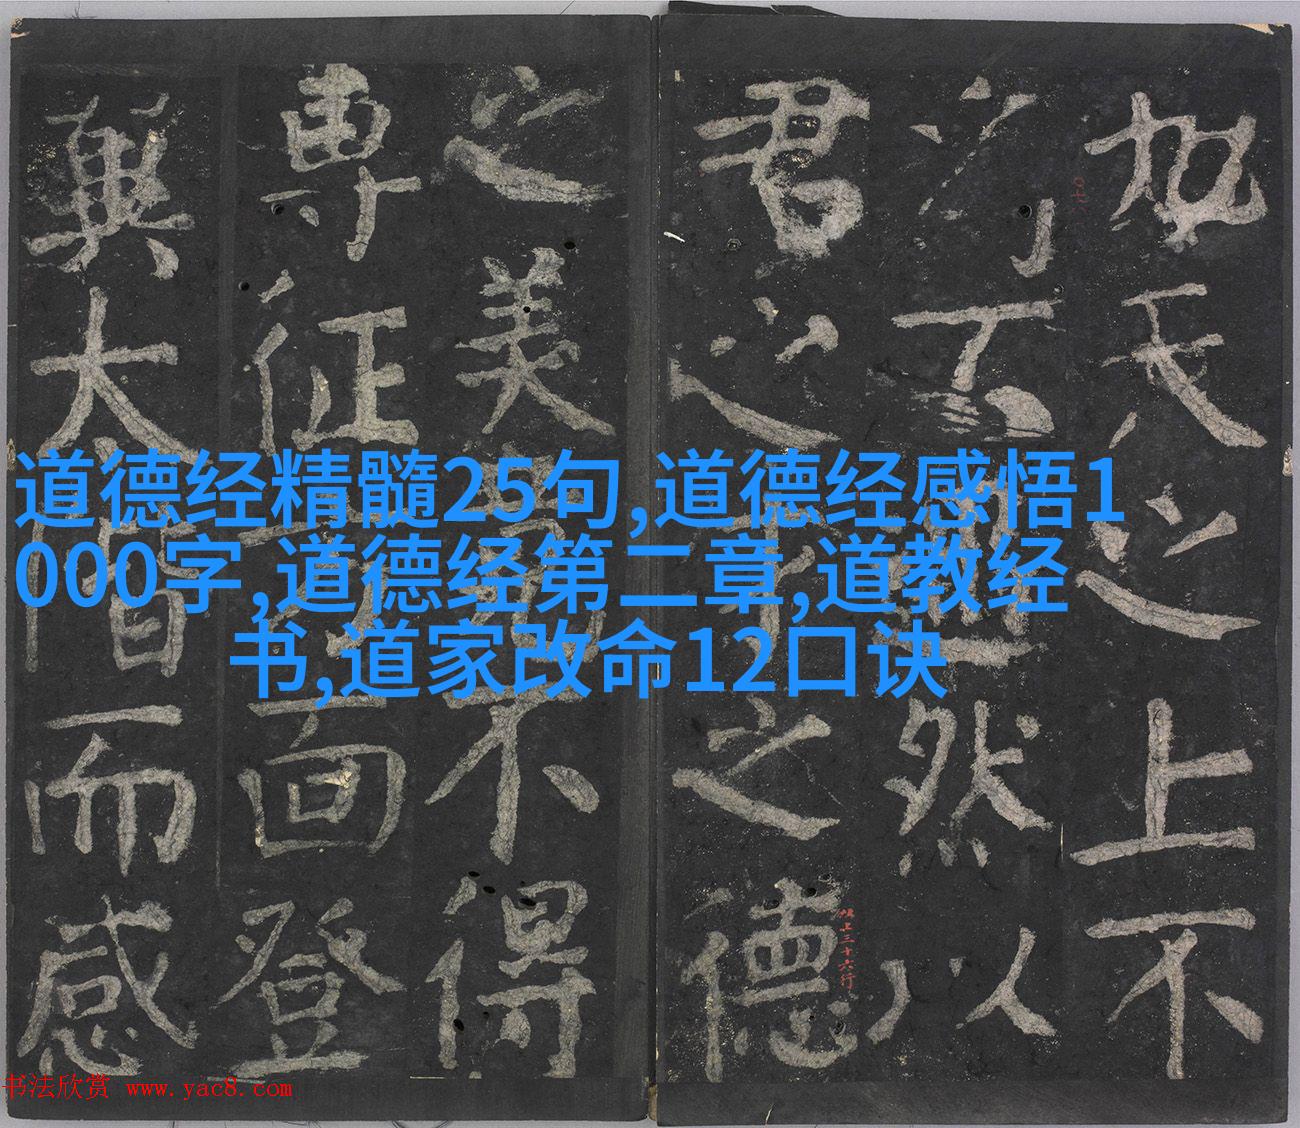 道德经精髓25句,道德经感悟1
000字,道德经第二章,道教经
书,道家改命12口诀
之上不
不然以人
君之之德
之美不得
專征面登
太階而感
上三十六行
书法欣赏 www.yac8.com